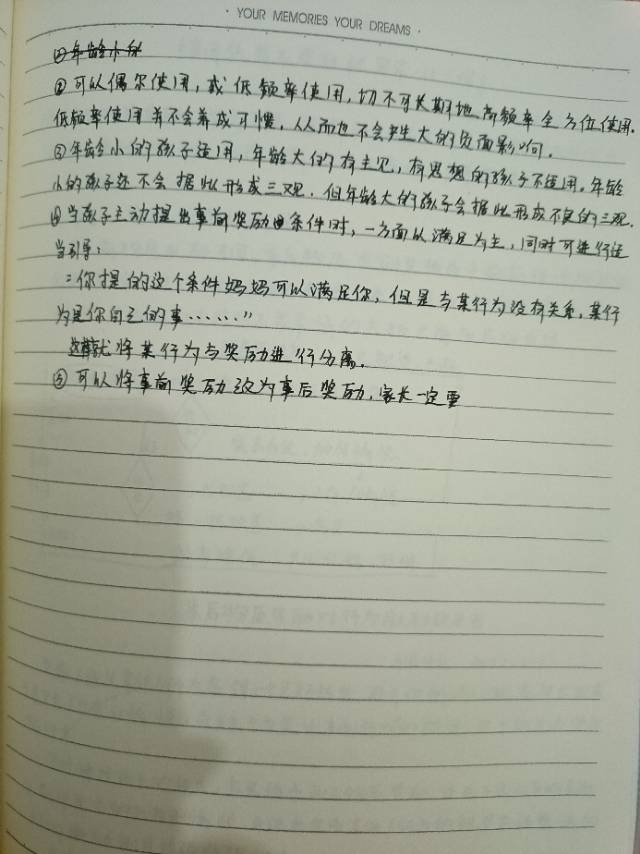 · YOUR MEMORIES YOUR DREAMS ·
②年龄小的
②可以偶尔使用，或低频率使用，切不可长期地高频率全方位使用.
低频率使用并不会养成习惯，从而也不会产生大的负面影响.
③年龄小的孩子适用，年龄大的有主见，有思想的孩子不适用。年龄
小的孩子还不会据此形成三观.但年龄大的孩子会据此形成不良的三观.
④当孩子主动提出事前奖励条件时，一方面以满足为主，同时可进行适
当引导：
“你提的这个条件妈妈可以满足你，但是与某行为没有关系，某行
为是你自己的事……”
这样就将某行为与奖励进行分离.
⑤可以将事前奖励改为事后奖励.家长一定要